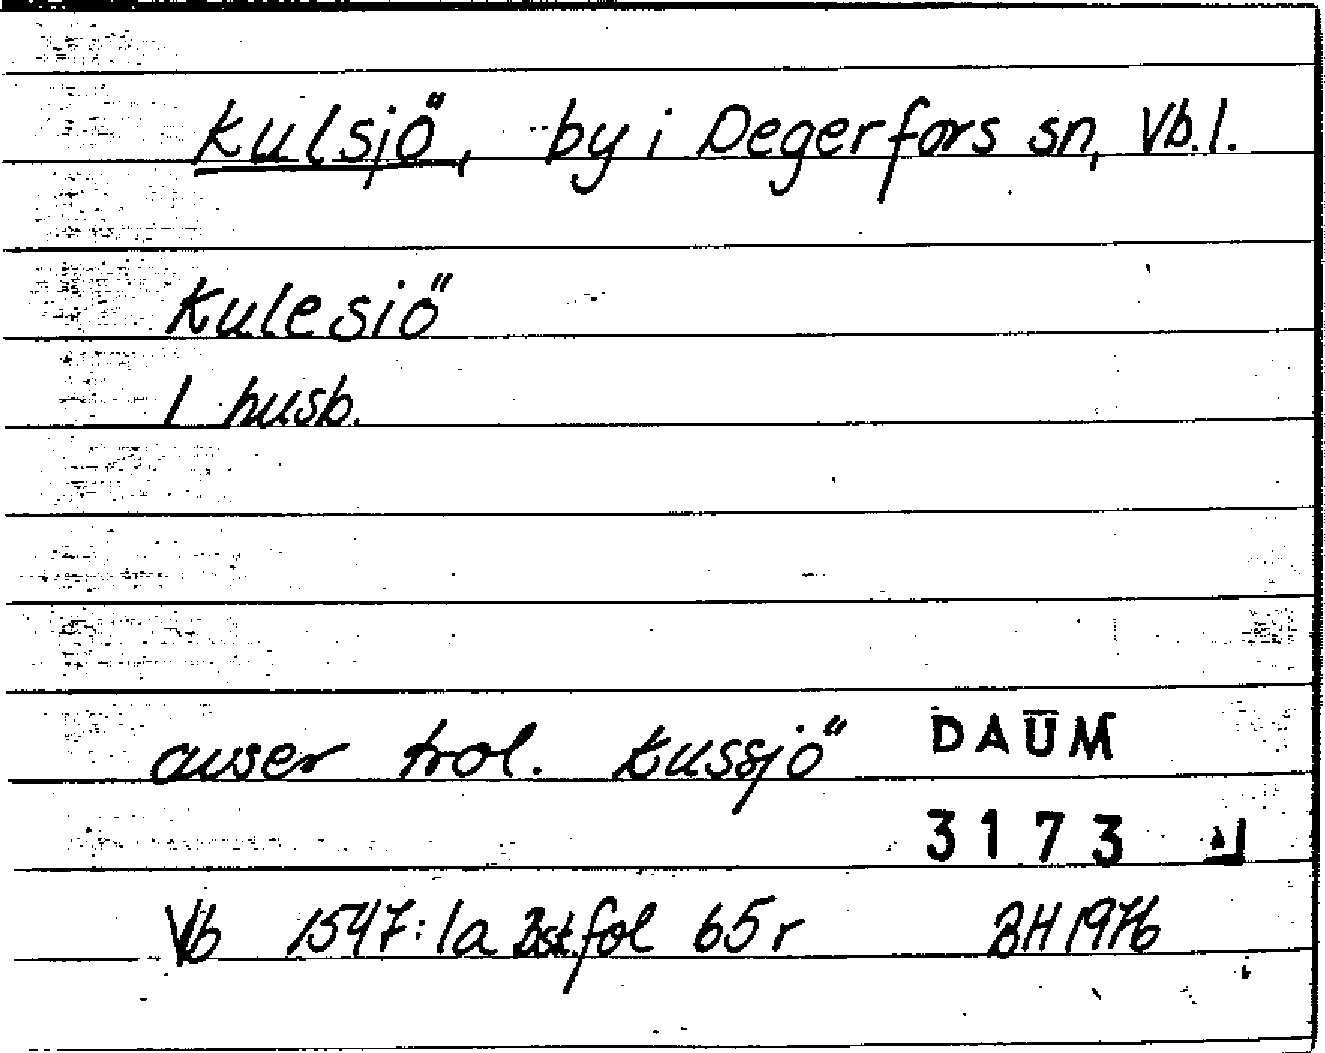 Kulsjö, by i Degerfors sn, Vb.l.
Kulesiö
1 husb.
avser trol. Kussjö
DAUM
3173
Vb 1547:1a Bst. fol 65 r BH 1976